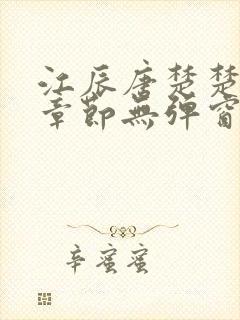 江辰唐楚楚
章節無彈窗
辛蜜蜜